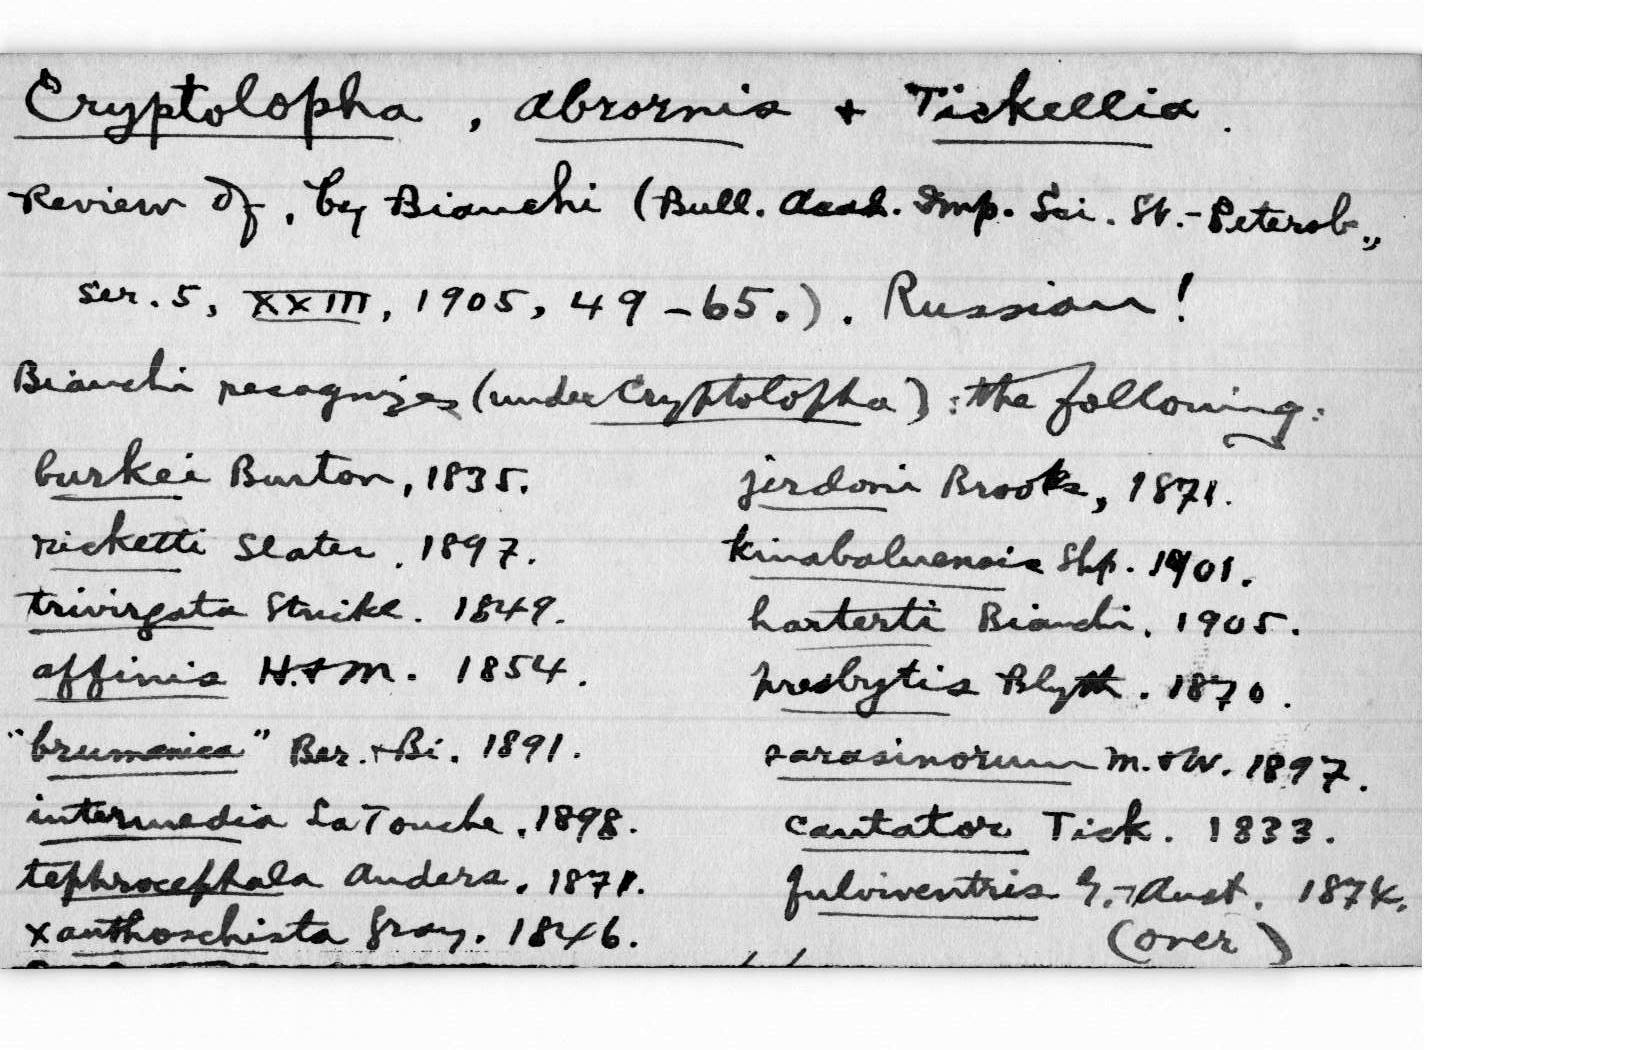 Cryptolopha, Abrornis & Tickellia.
Review of, by Bianchi (Bull. Acad. Imp. Sci. St.-Petersb.,
ser. 5, XXIII, 1905, 49-65.). Russian!
Bianchi recognizes (under Cryptolopha): the following:
burkei Burton, 1835.
ricketti Slater. 1897.
trivirgata Strickl. 1849.
affinis H.&M. 1854.
"brumanica" Ber.&Bi. 1891.
intermedia LaTouche. 1898.
tephrocephala Anders. 1871.
xanthoschista Gray. 1846.
jerdoni Brooks, 1871.
kinabaluensis Shp. 1901.
harterti Bianchi. 1905.
presbytis Blyth. 1870.
sarasinorum M.&W. 1897.
cantator Tick. 1833.
fulviventris G.-Aust. 1874.
(over)